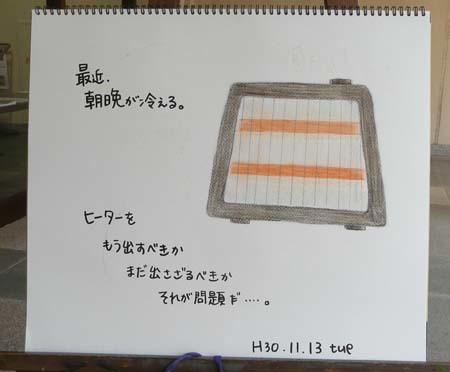 最近、
朝晩が冷える。
ヒーターを
もう出すべきか
まだ出さざるべきか
それが問題だ‥‥。
H30.11.13 tue